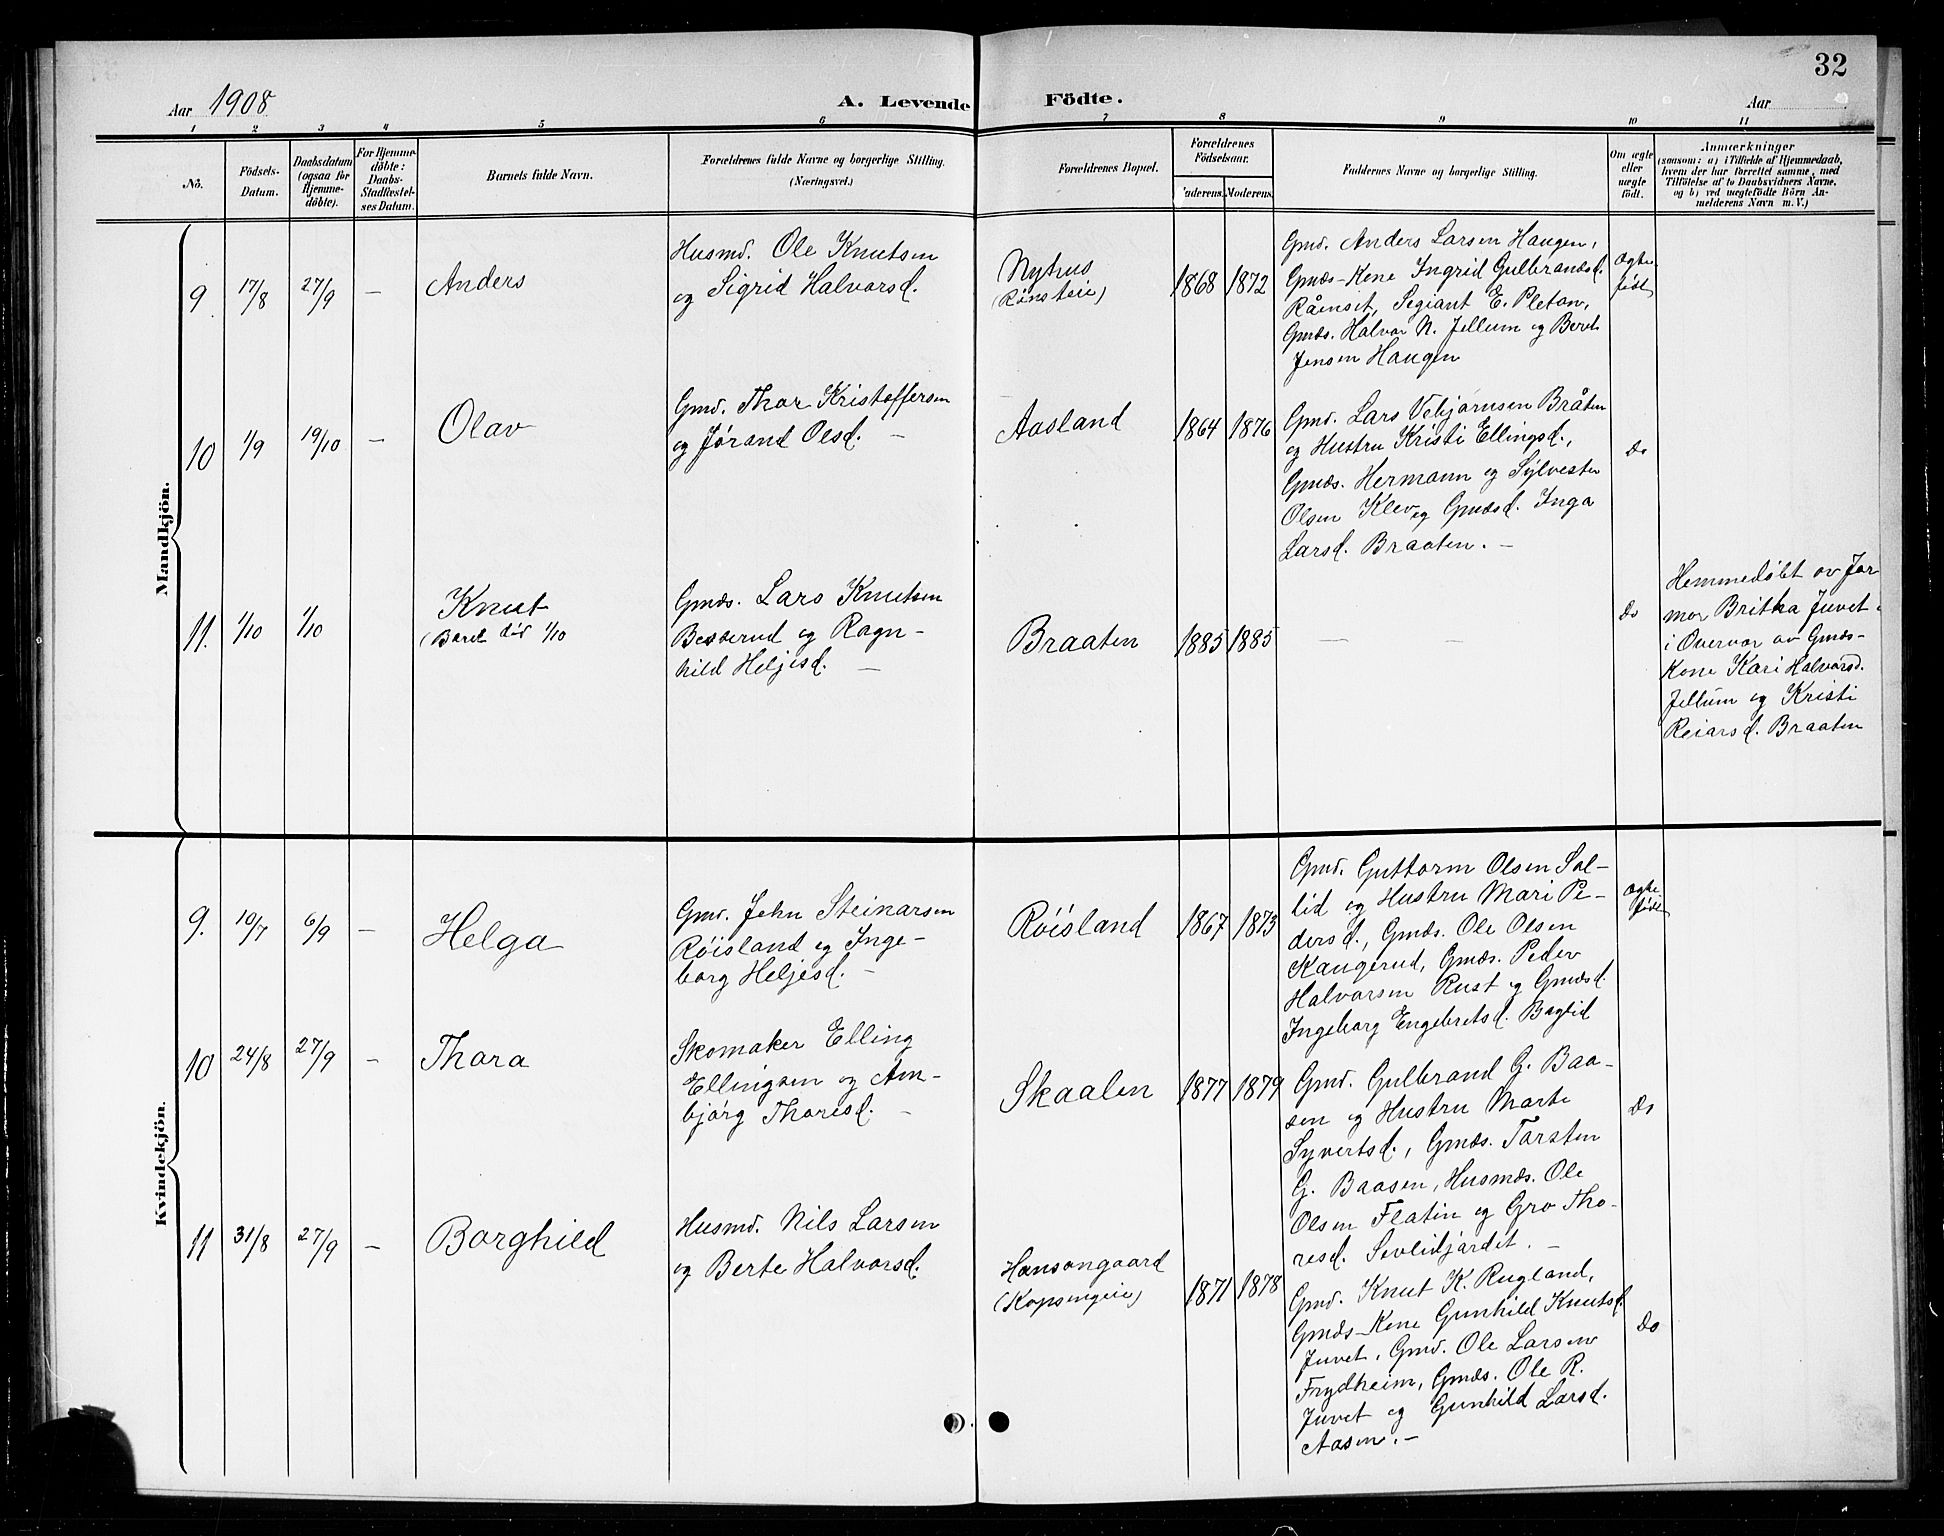 32
Aar 1908.
A. Levende Födte.
Aar
1 2 3 4 5 6 7 8 9 10 11
No.
Födsels-Datum.
Daabsdatum (ogsaa for Hjemme-döbte).
For Hjemme-döbte: Daabs-Stadfæstelses Datum.
Barnets fulde Navn.
Forældrenes fulde Navne og borgerlige Stilling. (Næringsvei.)
Forældrenes Bopæl.
Forældrenes Födselsaar.
Faderens. Moderens.
Faddernes Navne og borgerlige Stilling.
Om ægte eller uægte födt.
Anmærkninger
(saasom: a) i Tilfælde af Hjemmedaab,
hvem der har forrettet samme, med
Tilföielse af to Daabsvidners Navne,
og b) ved uægtefödte Börn An-
melderens Navn m. V.)
Mandkjön.
9 17/8 27/9 —
Anders
Husmd. Ole Knutsen
og Sigrid Halvorsd.
Nyhus
(Rønsteie)
1868 1872
Gmd. Anders Larsen Haugen,
Gmds-Kone Ingrid Gulbrandsd.
Råmset, Segiant E. Pletan,
Gmds. Halvor N. Jellum og Berit
Jensen Haugen
Ægte-
født
10 1/9 19/10 —
Olav
Gmd. Thor Kristoffersen
og Jørand Olsd. —
Aasland
1864 1876
Gmd. Lars Vebjørnsen Bråten
og Hustru Kristi Ellingsd.,
Gmds. Hermann og Sylvester
Olsen Klev og Gmdsd. Inga
Larsd. Braaten. —
Do
11. 1/10 1/10
Knut
(Barnet død 1/10
Gmds. Lars Knutsen
Besserud og Ragn-
hild Heljesd. —
Braaten
1885 1885
— —
Do
Hemmedøbt av Jor
mor Britha Juvet
i Overvær av Gmds-
Kone Kari Halvorsd.
Jellum og Kristi
Reiarsd. Braaten
Kvindekjön.
9. 10/7 6/9 —
Helga
Gmd. John Steinarsen
Röisland og Inge-
borg Heljesd. —
Röisland
1867 1873
Gmd. Guttorm Olsen Sol-
lid og Hustru Mari Pe-
dersd., Gmds. Ole Olsen
Kaugerud, Gmds. Peder
Halvorsen Rust og Gmdsd.
Ingeborg Engebretsd. Baglid
Ægte-
født
10 24/8 27/9 —
Thora
Skomaker Elling
Ellingsen og Am-
björg Thoresd. —
Skaalen
1877 1879
Gmd. Gulbrand G. Baa-
sen og Hustru Marte
Syvertsd., Gmds. Torsten
G. Baasen, Husmds. Ole
Olsen Flatin og Gro Tho-
resd. Sevlidjordet. —
Do
11 31/8 27/9 —
Borghild
Husmd. Nils Larsen
og Berte Halvorsd.
Hansengaard
(Kopsengeie)
1871 1878
Gmd. Knut K. Rugland,
Gmds-Kone Gunhild Knutsd.
Juvet, Gmd. Ole Larsen
Frydheim, Gmds. Ole R.
Juvet og Gunhild Larsd.
Aasen. —
Do